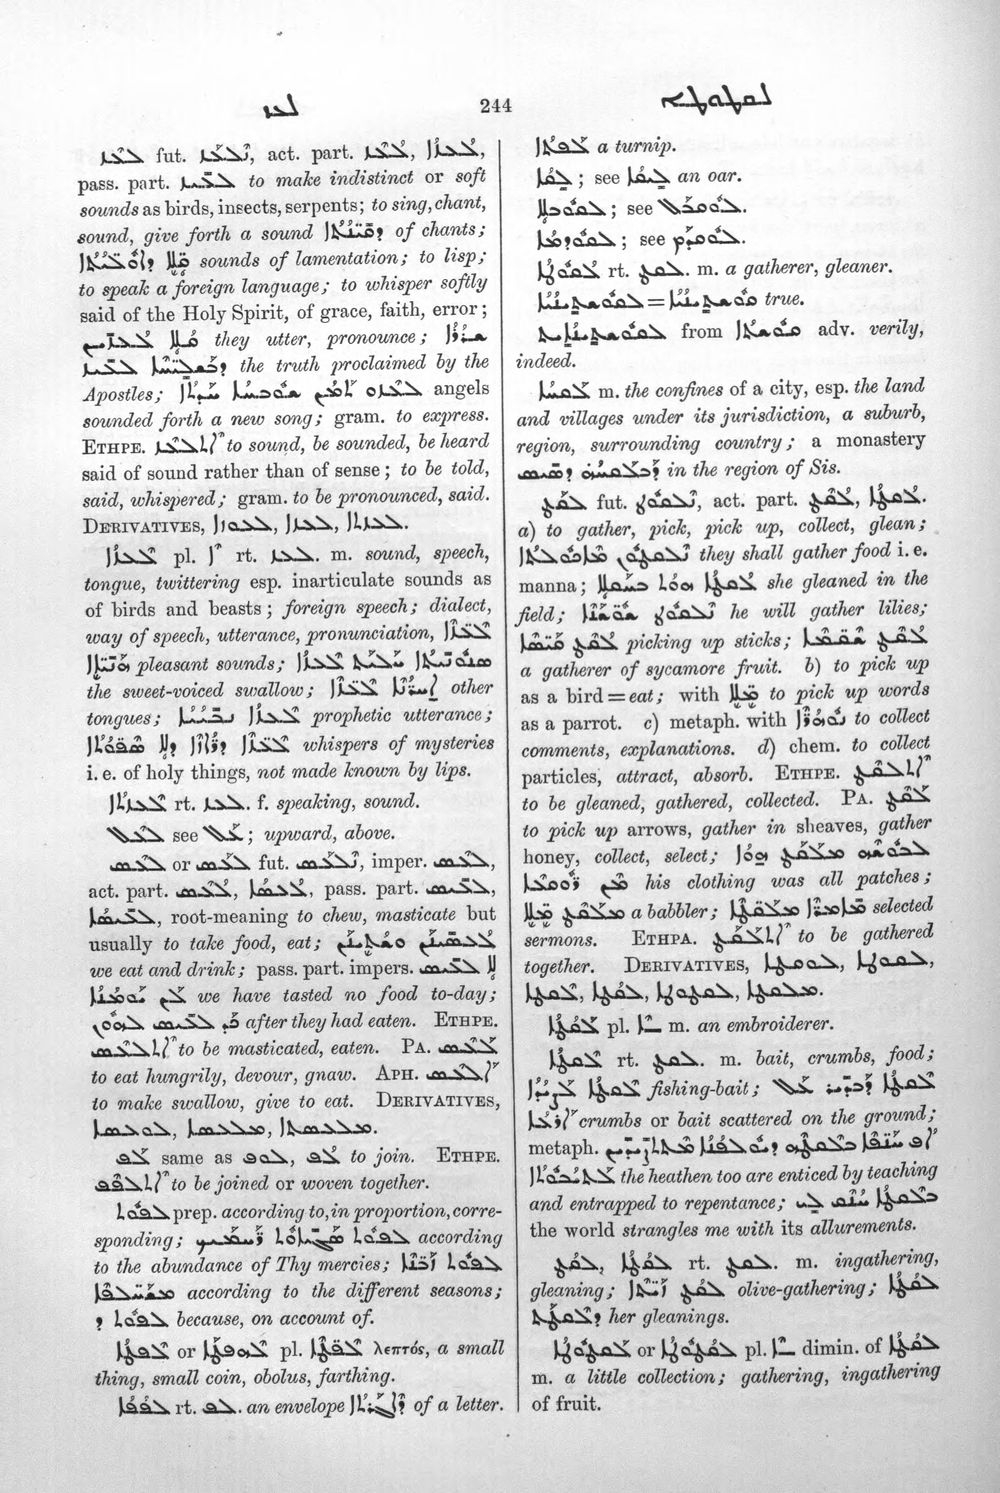 ܠܥܙ 244
ܠܥܙ fut. ܢܠܥܙ, act. part. ܠܥܙ, ܠܥܙܐ,
pass. part. ܠܥܝܙ to make indistinct or soft
sounds as birds, insects, serpents; to sing, chant,
sound, give forth a sound of chants;
ܩܠܐ sounds of lamentation; to lisp;
to speak a foreign language; to whisper softly
said of the Holy Spirit, of grace, faith, error;
ܩܠܐ ܠܥܙܝܢ they utter, pronounce; ܫܪܪܐ
ܕܒܫܠܝܚܐ ܠܥܝܙ the truth proclaimed by the
Apostles; ܠܥܙܘ ܬܡܢ ܫܘܒܚܐ ܚܕܬܐ angels
sounded forth a new song; gram. to express.
ETHPE. ܐܬܠܥܙ to sound, be sounded, be heard
said of sound rather than of sense; to be told,
said, whispered; gram. to be pronounced, said.
DERIVATIVES, ܠܥܘܙܐ, ܠܥܙܐ, ܠܥܙܬܐ.
ܠܥܙܐ pl. rt. ܠܥܙ. m. sound, speech,
tongue, twittering esp. inarticulate sounds as
of birds and beasts; foreign speech; dialect,
way of speech, utterance, pronunciation, ܠܥܙܐ
pleasant sounds; ܣܢܘܢܝܬܐ ܚܠܝܬ ܠܥܙܐ
the sweet-voiced swallow; ܠܥܙܐ ܐܚܪܢܐ other
tongues; ܠܥܙܐ ܢܒܝܝܐ prophetic utterance;
ܠܥܙܐ ܕܐܪܙܐ ܕܠܐ ܣܦܘܬܐ whispers of mysteries
i. e. of holy things, not made known by lips.
ܠܥܙܬܐ rt. ܠܥܙ. f. speaking, sound.
ܠܥܠ see ܥܠ; upward, above.
ܠܥܣ or ܠܥܣ fut. ܢܠܥܣ, imper. ܠܥܣ,
act. part. ܠܥܣ, ܠܥܣܐ, pass. part. ܠܥܝܣ,
ܠܥܝܣܐ, root-meaning to chew, masticate but
usually to take food, eat; ܠܥܣܝܢܢ ܘܫܬܝܢܢ
we eat and drink; pass. part. impers. ܠܐ ܠܥܝܣ
ܠܢ ܝܘܡܢܐ we have tasted no food to-day;
ܟܕ ܠܥܝܣ ܠܗܘܢ after they had eaten. ETHPE.
ܐܬܠܥܣ to be masticated, eaten. PA. ܠܥܣ
to eat hungrily, devour, gnaw. APH. ܐܠܥܣ
to make swallow, give to eat. DERIVATIVES,
ܠܥܣܐ, ܠܥܘܣܐ, ܡܠܥܣܐ, ܡܠܥܣܬܐ.
ܠܦ same as ܠܘܦ, ܠܦ to join. ETHPE.
ܐܬܠܦܦ to be joined or woven together.
ܠܦܘܬ prep. according to, in proportion, corre-
sponding; ܠܦܘܬ ܣܓܝܐܘܬܐ ܕܪܚܡܝܟ according
to the abundance of Thy mercies; ܠܦܘܬ ܙܒܢܐ
ܡܫܚܠܦܐ according to the different seasons;
ܠܦܘܬ ܕ because, on account of.
ܠܦܛܐ or ܠܗܦܛܐ pl. ܠܦܛܐ λεπτός, a small
thing, small coin, obolus, farthing.
ܠܦܦܐ rt. ܠܦ. an envelope ܕܐܓܪܬܐ of a letter.
ܠܦܬܐ a turnip.
ܠܩܐ; see ܠܝܩܐ an oar.
ܠܩܘܒܠܐ; see ܠܘܩܒܠ.
ܠܩܘܕܡܐ; see ܠܘܩܕܡ.
ܠܩܘܛܐ rt. ܠܩܛ. m. a gatherer, gleaner.
ܠܩܘܫܬܝܢܝܐ=ܩܘܫܬܝܢܝܐ true.
ܠܩܘܫܬܝܢܐܝܬ from ܩܘܫܬܐ adv. verily,
indeed.
ܠܩܘܚܐ m. the confines of a city, esp. the land
and villages under its jurisdiction, a suburb,
region, surrounding country; a monastery
in the region of Sis.
ܠܩܛ fut. ܢܠܩܘܛ, act. part. ܠܩܛ, ܠܩܛܐ.
a) to gather, pick, pick up, collect, glean;
ܢܠܩܛܘܢ ܡܐܟܘܠܬܐ they shall gather food i. e.
manna; ܠܩܛܐ ܗܘܬ ܒܚܩܠܐ she gleaned in the
field; ܢܠܩܘܛ ܫܘܫܢܐ he will gather lilies;
ܠܩܛ ܩܝܣܐ picking up sticks; ܠܩܛ ܫܩܡܐ
a gatherer of sycamore fruit. b) to pick up
as a bird=eat; with ܡܠܐ to pick up words
as a parrot. c) metaph. with ܢܘܗܪܐ to collect
comments, explanations. d) chem. to collect
particles, attract, absorb. ETHPE. ܐܬܠܩܛ
to be gleaned, gathered, collected. PA. ܠܩܛ
to pick up arrows, gather in sheaves, gather
honey, collect, select; ܠܒܘܫܗ ܡܠܩܛ ܗܘܐ
his clothing was all patches;
ܡܠܩܛ ܡܠܐ a babbler; ܡܐܡܪܐ ܡܠܩܛܐ selected
sermons. ETHPA. ܐܬܠܩܛ to be gathered
together. DERIVATIVES, ܠܩܘܛܐ,
ܠܩܛܐ, ܠܩܛܐ, ܡܠܩܛܐ.
ܠܩܛܐ pl. m. an embroiderer.
ܠܩܛܐ rt. ܠܩܛ. m. bait, crumbs, food;
ܠܩܛܐ ܠܨܝܕܐ fishing-bait; ܠܩܛܐ ܕܒܕܝܪ ܥܠ
ܐܪܥܐ crumbs or bait scattered on the ground;
metaph.
ܠܬܝܒܘܬܐ the heathen too are enticed by teaching
and entrapped to repentance; ܒܠܩܛܐ ܚܢܩ ܠܝ
the world strangles me with its allurements.
ܠܩܛ, ܠܩܛܐ rt. ܠܩܛ. m. ingathering,
gleaning; ܠܩܛ ܙܝܬܐ olive-gathering; ܠܩܛܐ
ܕܠܩܛܬ her gleanings.
or pl. dimin. of ܠܩܛܐ
m. a little collection; gathering, ingathering
of fruit.